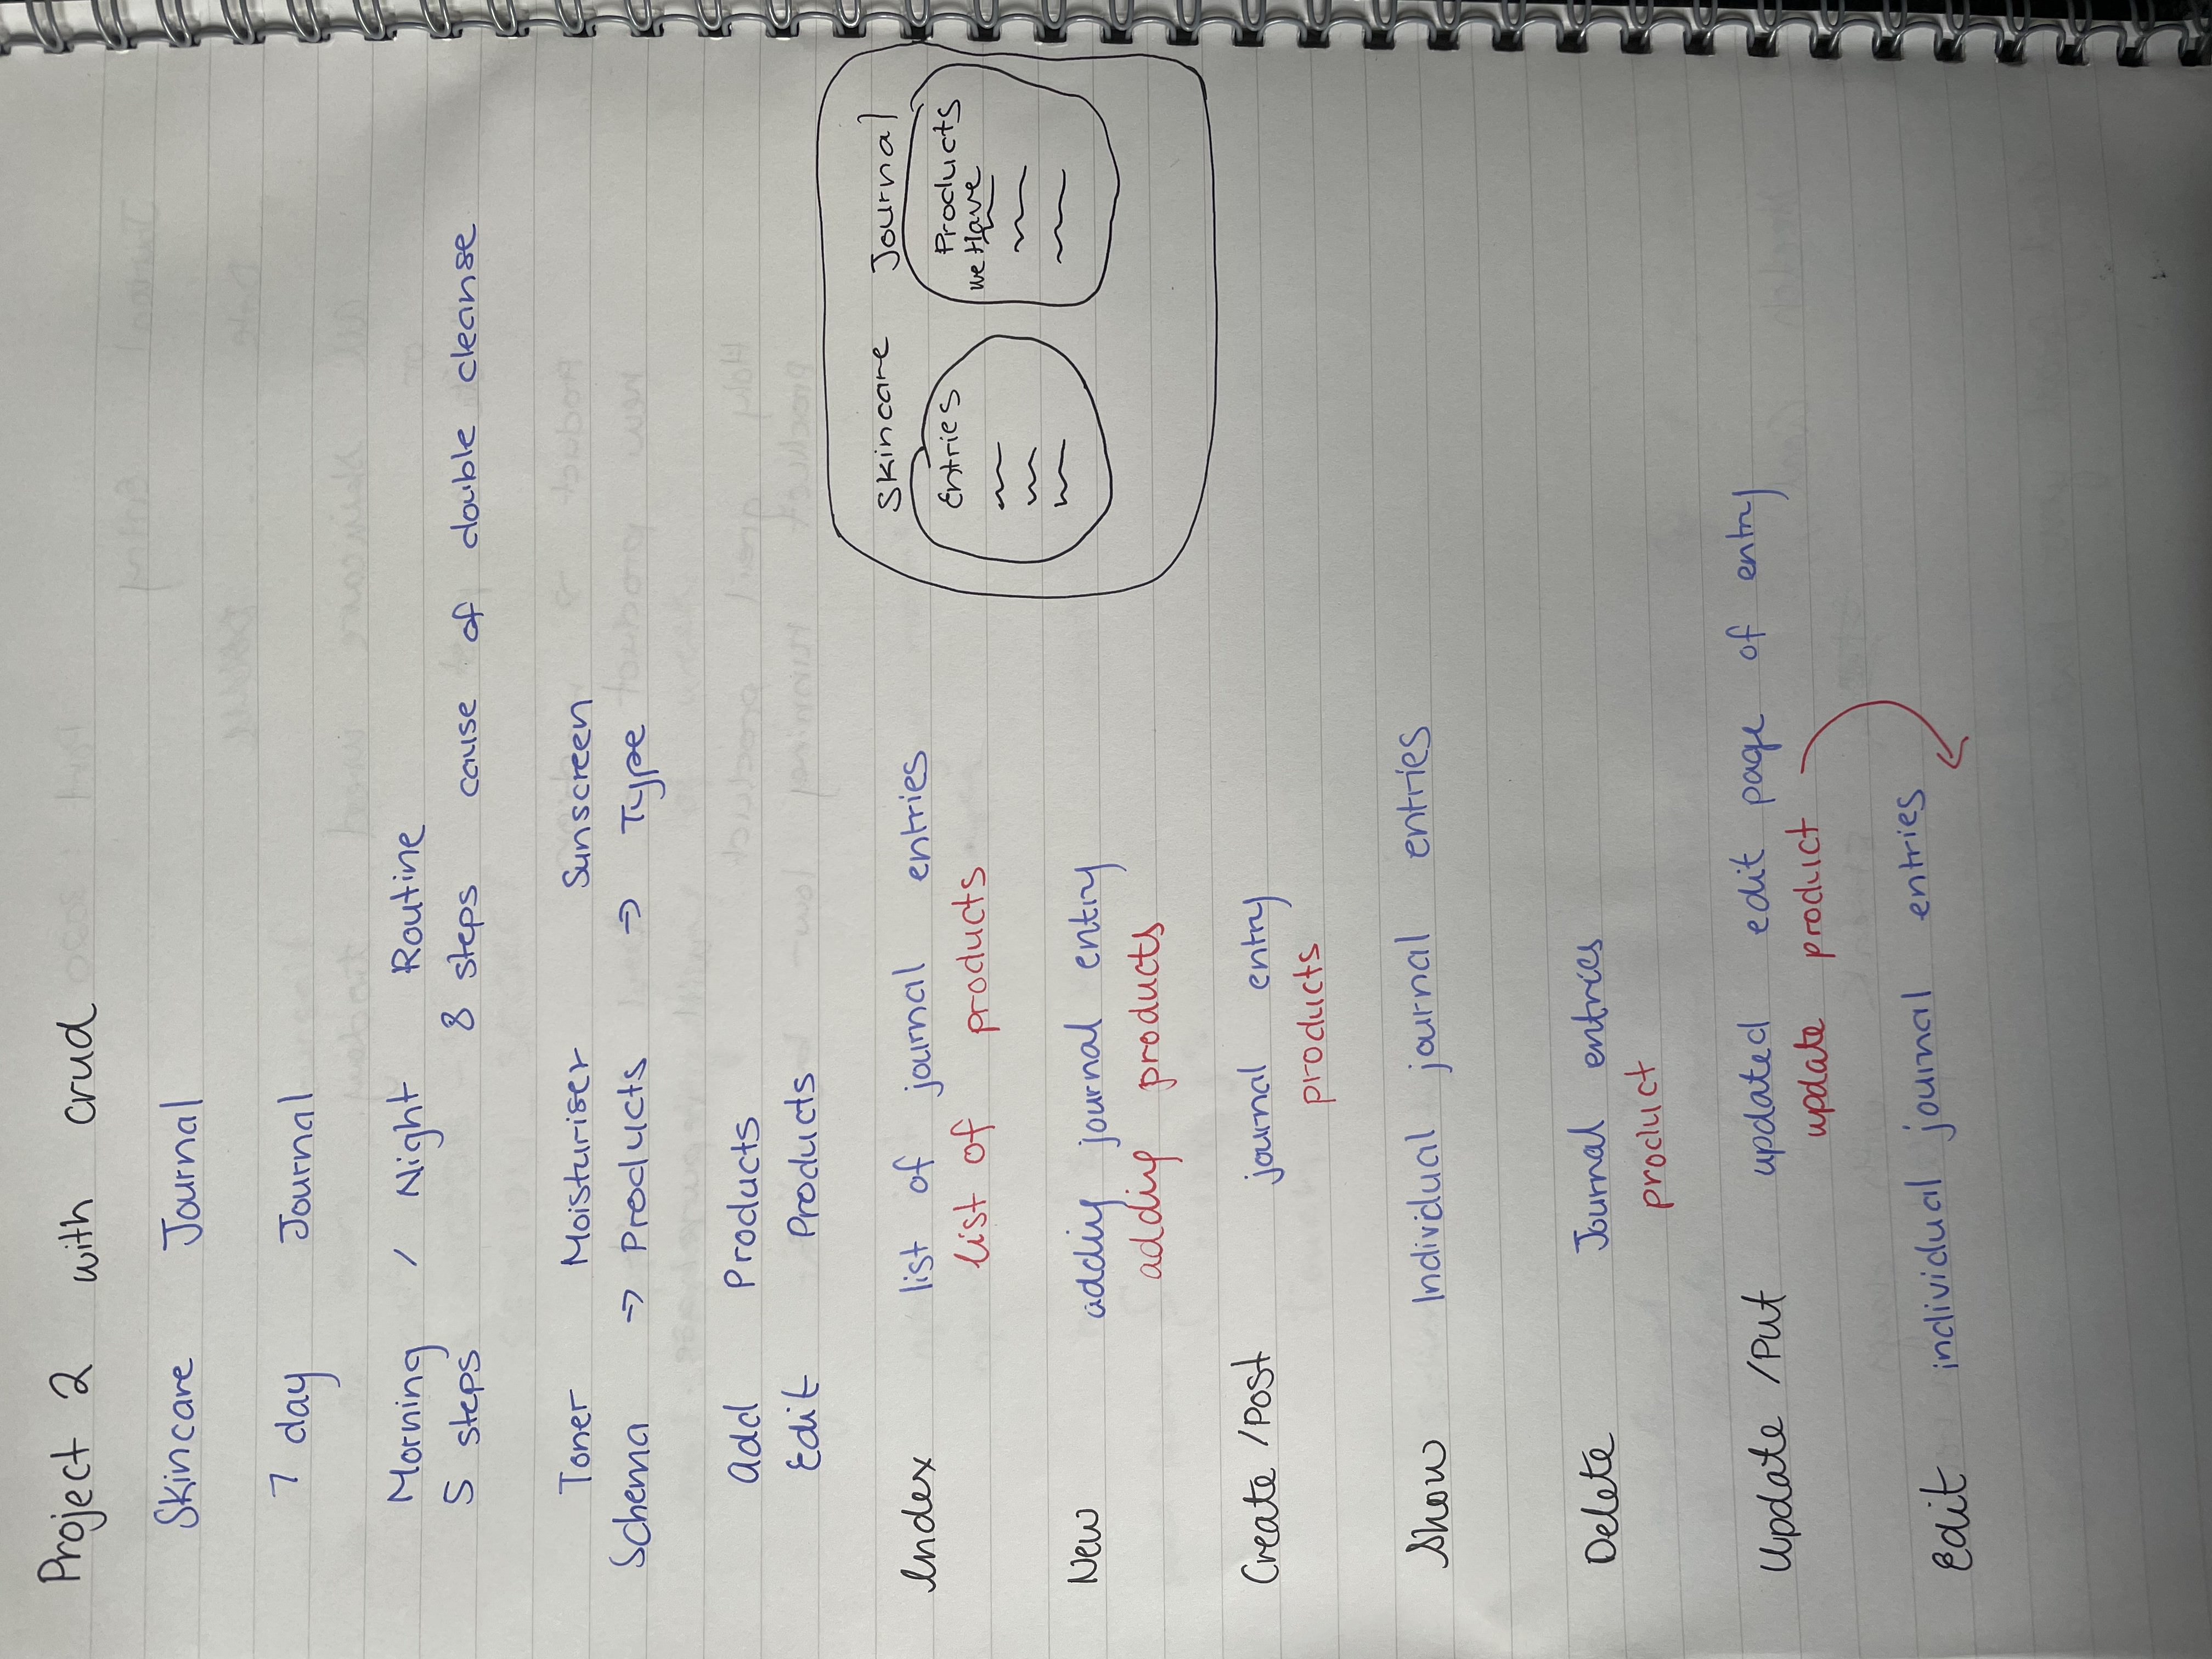 Project 2 with crud
Skincare Journal
7 day Journal
Morning / Night Routine
5 steps 8 steps cause of double cleanse
Toner Moisturiser Sunscreen
Schema → Products → Type
Add Products
Edit Products
Index list of journal entries
list of products
Skincare Journal
Entries
Products
we Have
New adding journal entry
adding products
Create / Post journal entry
products
Show Individual journal entries
Delete Journal entries
product
Update / Put updated edit page of entry
update product
Edit individual journal entries